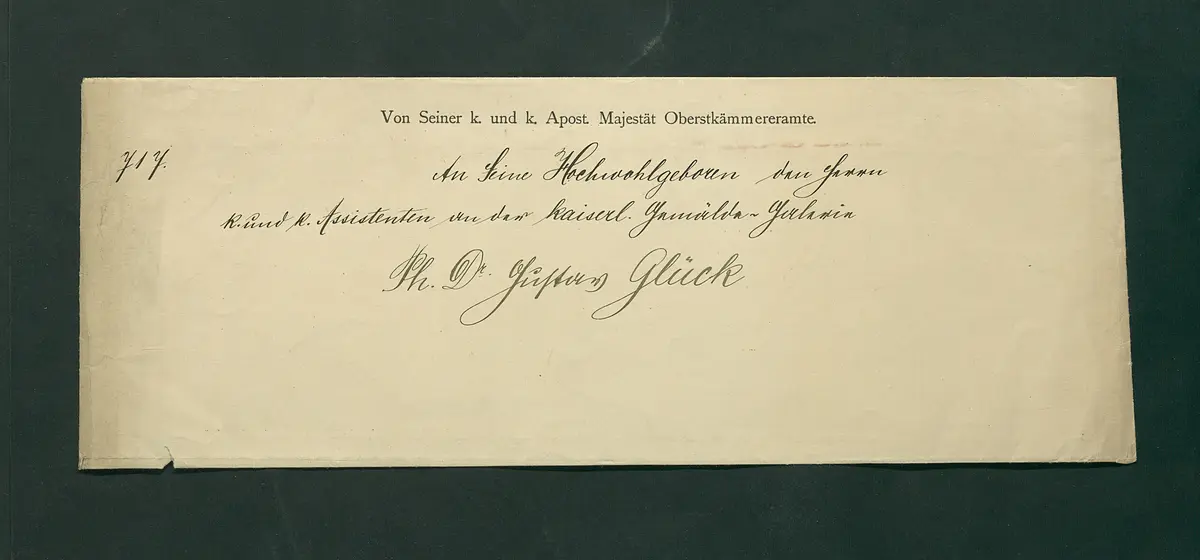 Von Seiner k. und k. Apost. Majestät Oberstkämmereramte.
717.
An Seine Hochwohlgeboren den Herrn
k. und k. Assistenten an der kaiserl. Gemälde-Galerie
Ph. Dr. Gustav Glück